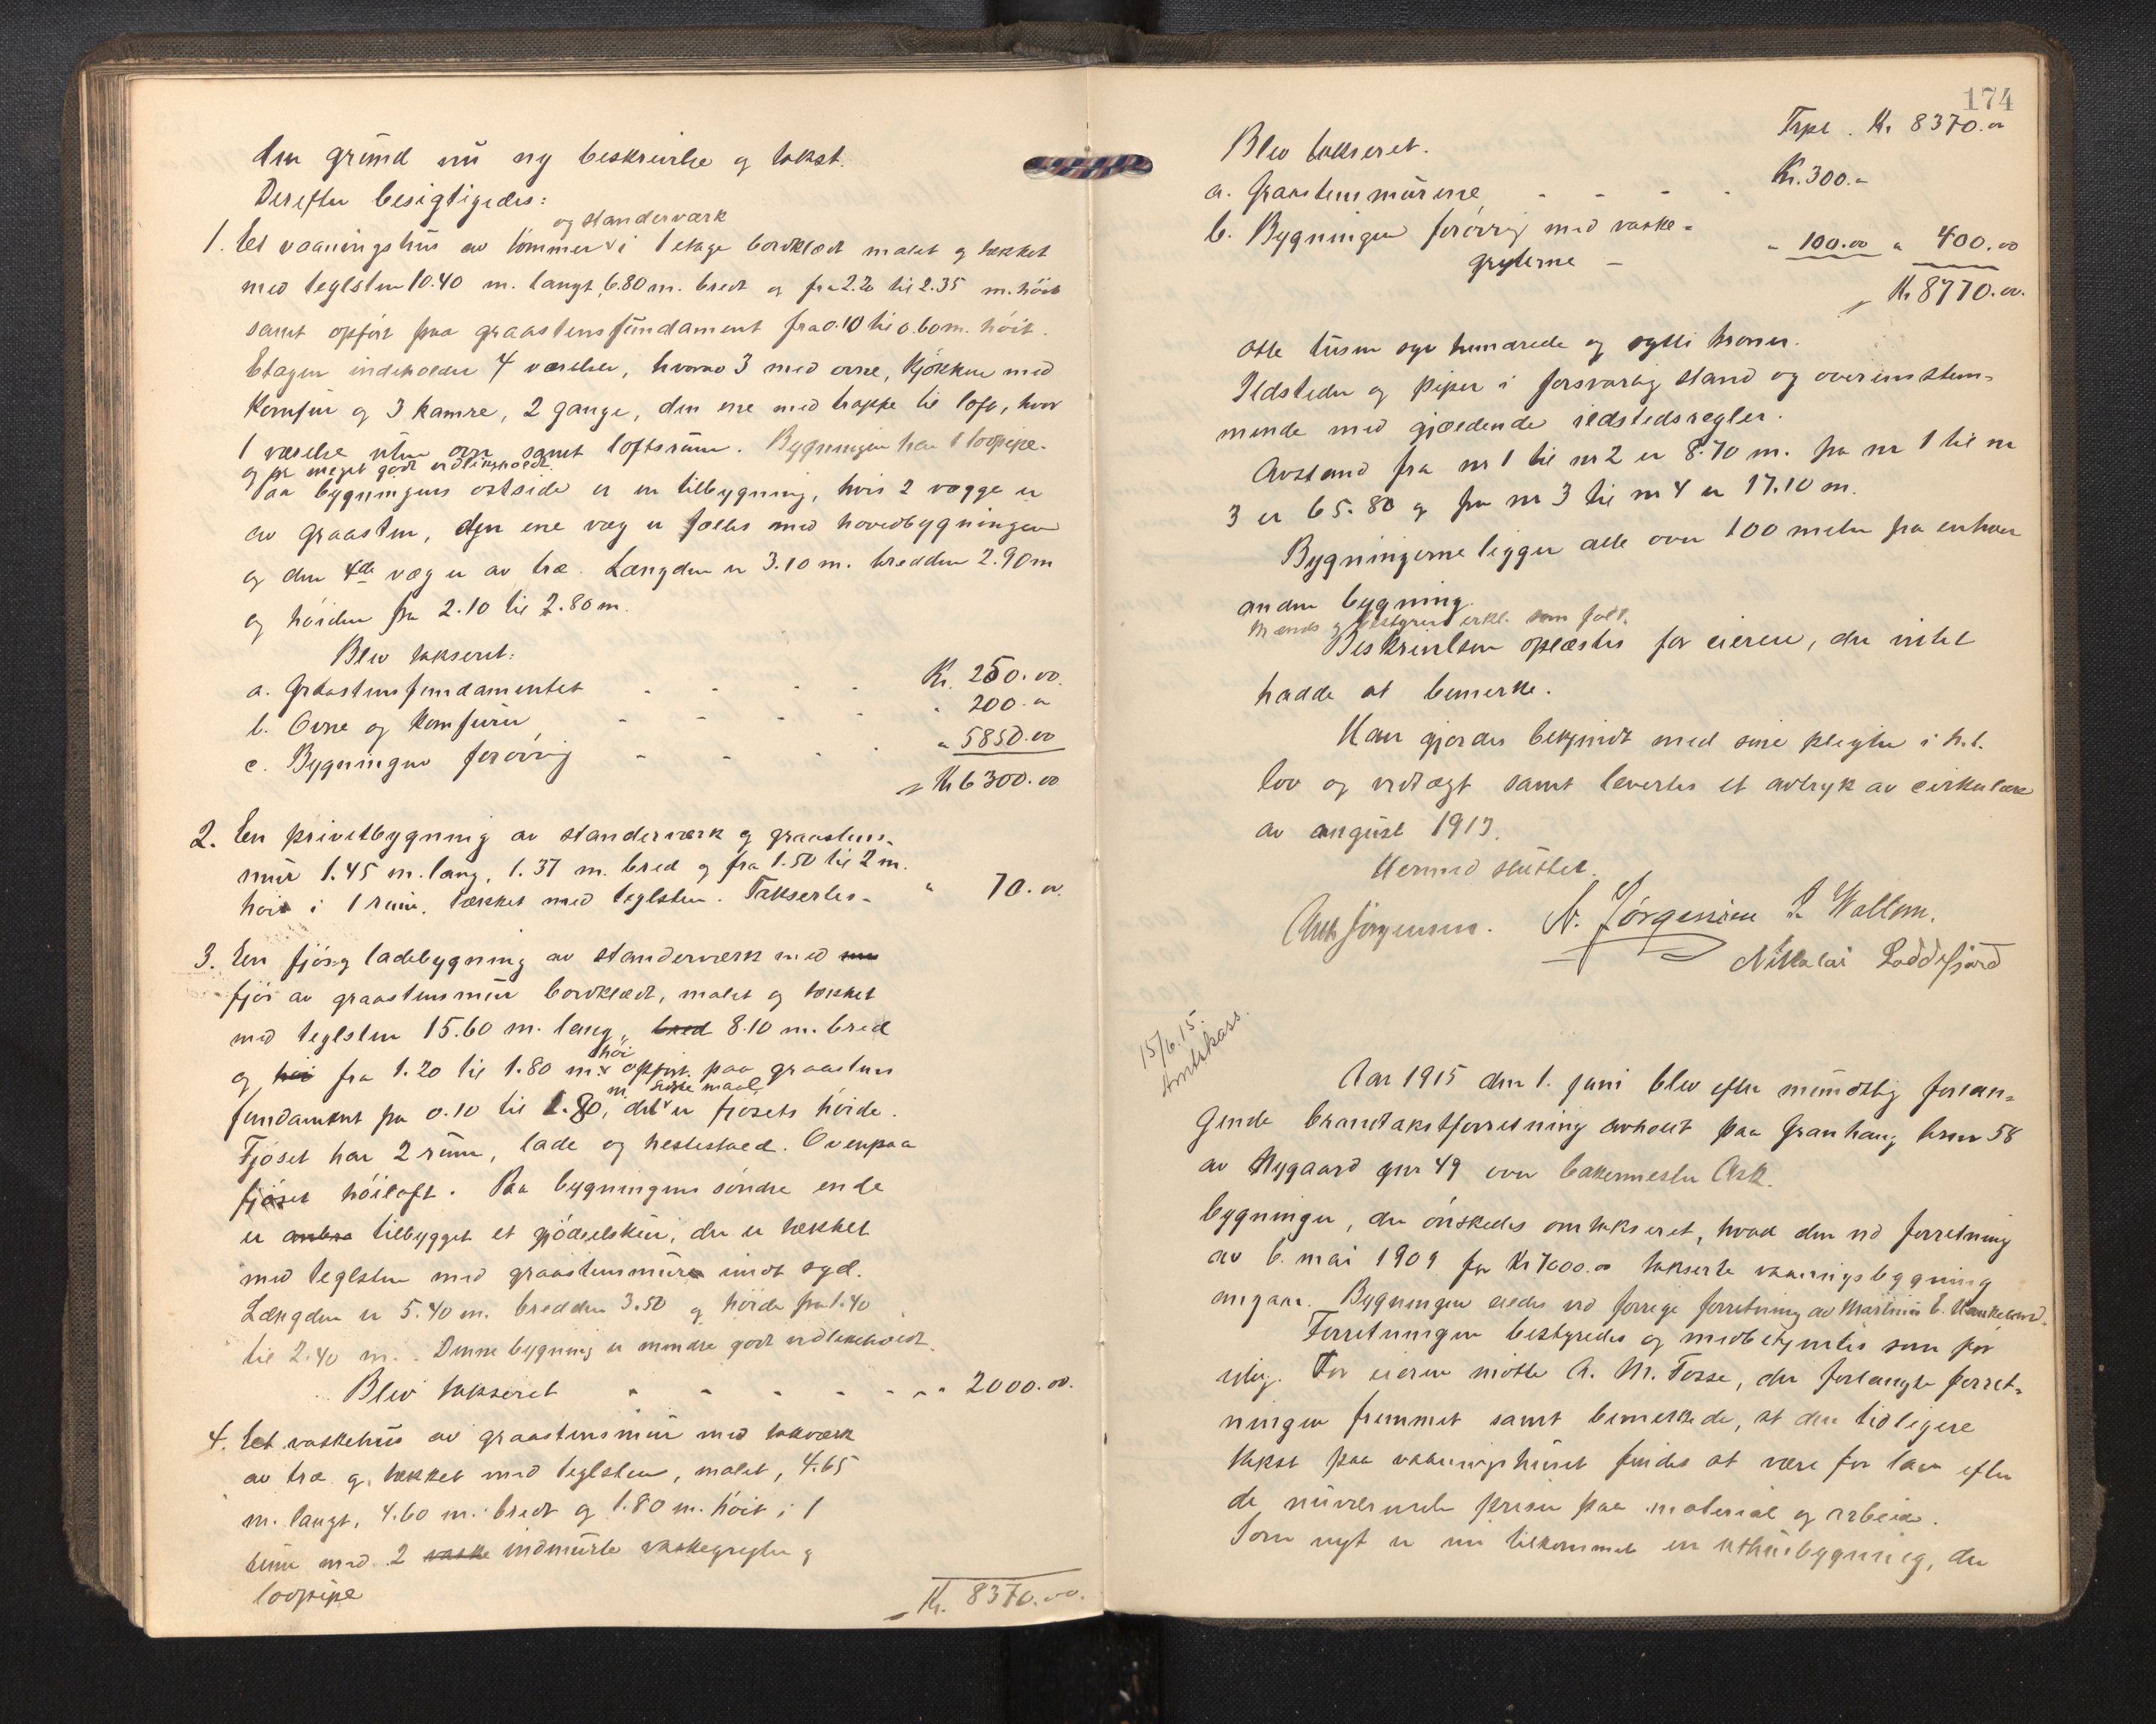 den grund nu ny beskrivelse og takst.
Derefter besigtigedes:
og standerværk
1. Et vaaningshus av tømmer i 1 etage bordklædt malet og tækket
med teglsten 10.40 m. langt, 6.80 m. bredt og fra 2.20 til 2.35 m. høit
samt opført paa graastensfundament fra 0.10 til 0.60 m. høit.
Etagen indeholder 4 værelser, hvorav 3 med ovne, kjøkken med
komfur og 3 kamre, 2 gange, den ene med trappe til loft, hvor
1 værelse uten ovn samt loftsrum. Bygningen har 1 lodpipe
og er meget godt vedlikeholdt.
Paa bygningens østside er en tilbygning, hvis 2 vægge er
av graasten, den ene væg er fælles med hovedbygningen
og den 4de væg er av træ. Længden er 3.10 m. bredden 2.90 m
og høiden fra 2.10 til 2.80 m.
Blev takseret:
a. Graastensfundamentet - - - - Kr. 250.00.
b. Ovne og komfurer - - - - " 200.00
c. Bygningen forøvrig - - - - " 5850.00
Kr 6300.00
2. En privetbygning av standerværk og graastens-
mur 1.45 m. lang, 1.37 m. bred og fra 1.50 til 2 m.
høi i 1 rum, tækket med teglsten. Takseres - " 70.00.
3. En fjøs og ladebygning av standerværk med
fjøs av graastensmur bordklædt, malet og tækket
med teglsten 15.60 m. lang, bred 8.10 m. bred
og høi fra 1.20 til 1.80 m. høi opført paa graastens
fundament fra 0.10 til 1.80 m, det siste maal er fjøsets høide.
Fjøset har 2 rum, lade og hestestald. Ovenpaa
fjøset høiloft. Paa bygningens søndre ende
er tilbygget et gjødselskur, der er tækket
med teglsten med graastensmur imot syd.
Længden er 5.40 m. bredden 3.50 og høide fra 1.40
til 2.40 m. Denne bygning er mindre godt vedlikeholdt.
Blev takseret - - - - - " 2000.00.
4. Et vaskehus av graastensmur med takværk
av træ og tækket med teglsten, malet, 4.65
m. langt, 4.60 m. bredt og 1.80 m. høit i 1
rum med 2 vaske indmurte vaskegryter og
lodpipe
Kr. 8370.00.
174
Trpt. Kr 8370.00
Blev takseret.
a. Graastensmurene - - - - Kr. 300.-
b. Bygningen forøvrig med vaske-
gryterne - " 100.00 " 400.00
Kr 8770.00.
otte tusen syv hundrede og sytti kroner.
Ildsteder og piper i forsvarlig stand og overensstem-
mende med gjældende ildstedsregler.
Avstand fra nr 1 til nr 2 er 8.70 m. fra nr 1 til nr
3 er 65.80 og fra nr 3 til nr 4 er 17.10 m.
Bygningerne ligger alle over 100 meter fra enhver
anden bygning.
Mænds og bestyrers erkl. som falt.
Beskrivelsen oplæstes for eieren, der intet
hadde at bemerke.
Han gjordes bekjendt med sine pligter i h.t.
lov og vedtægt samt levertes et avtryk av cirkulære
av august 1913.
Hermed sluttet.
Anth Jørgensen. N. Jørgensen P. Waltem.
Nikolai Loddefjord
15/6.15.
Amtskass.
Aar 1915 den 1. juni blev efter mundtlig forlan-
gende brandtakstforretning avholdt paa Granhaug brnr 58
av Nygaard gnr 49 over bakermester Ask.
bygninger, der ønskedes omtakseret, hvad den ved forretning
av 6. mai 1909 for Kr 7000.00 takserte vaaningsbygning
angaar. Bygningen eiedes ved forrige forretning av Martinus E. Haukeland.
Forretningen bestyredes og medbetjentes som før
idag. For eieren møtte A. M. Fosse, der forlangte forret-
ningen fremmet samt bemerkede, at den tidligere
takst paa vaaningshuset findes at være for lav efter
de nuværende priser paa material og arbeide.
Som nyt er nu tilkommet en uthusbygning, der